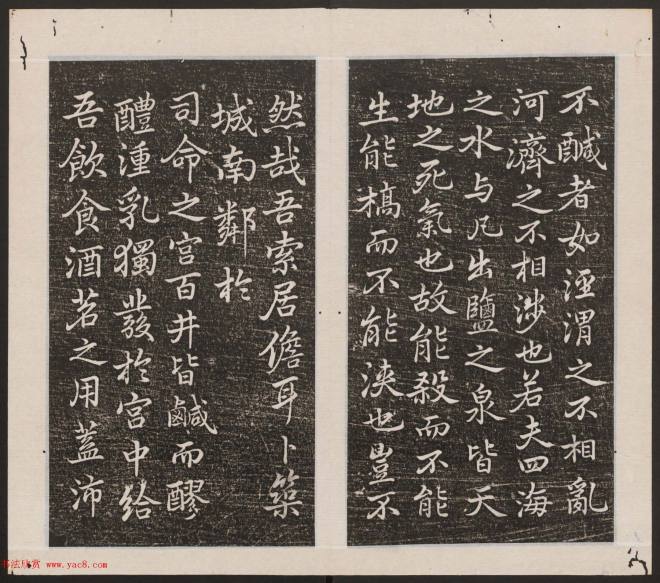 不醎者如涇渭之不相亂
河濟之不相涉也若夫四海
之水与凡出鹽之泉皆天
地之死氣也故能殺而不能
生能槁而不能浹也豈不
然哉吾索居儋耳卜築
城南鄰於
司命之宫百井皆鹹而醪
醴湩乳獨發於宫中給
吾飲食酒茗之用蓋沛
书法欣赏 www.yac8.com